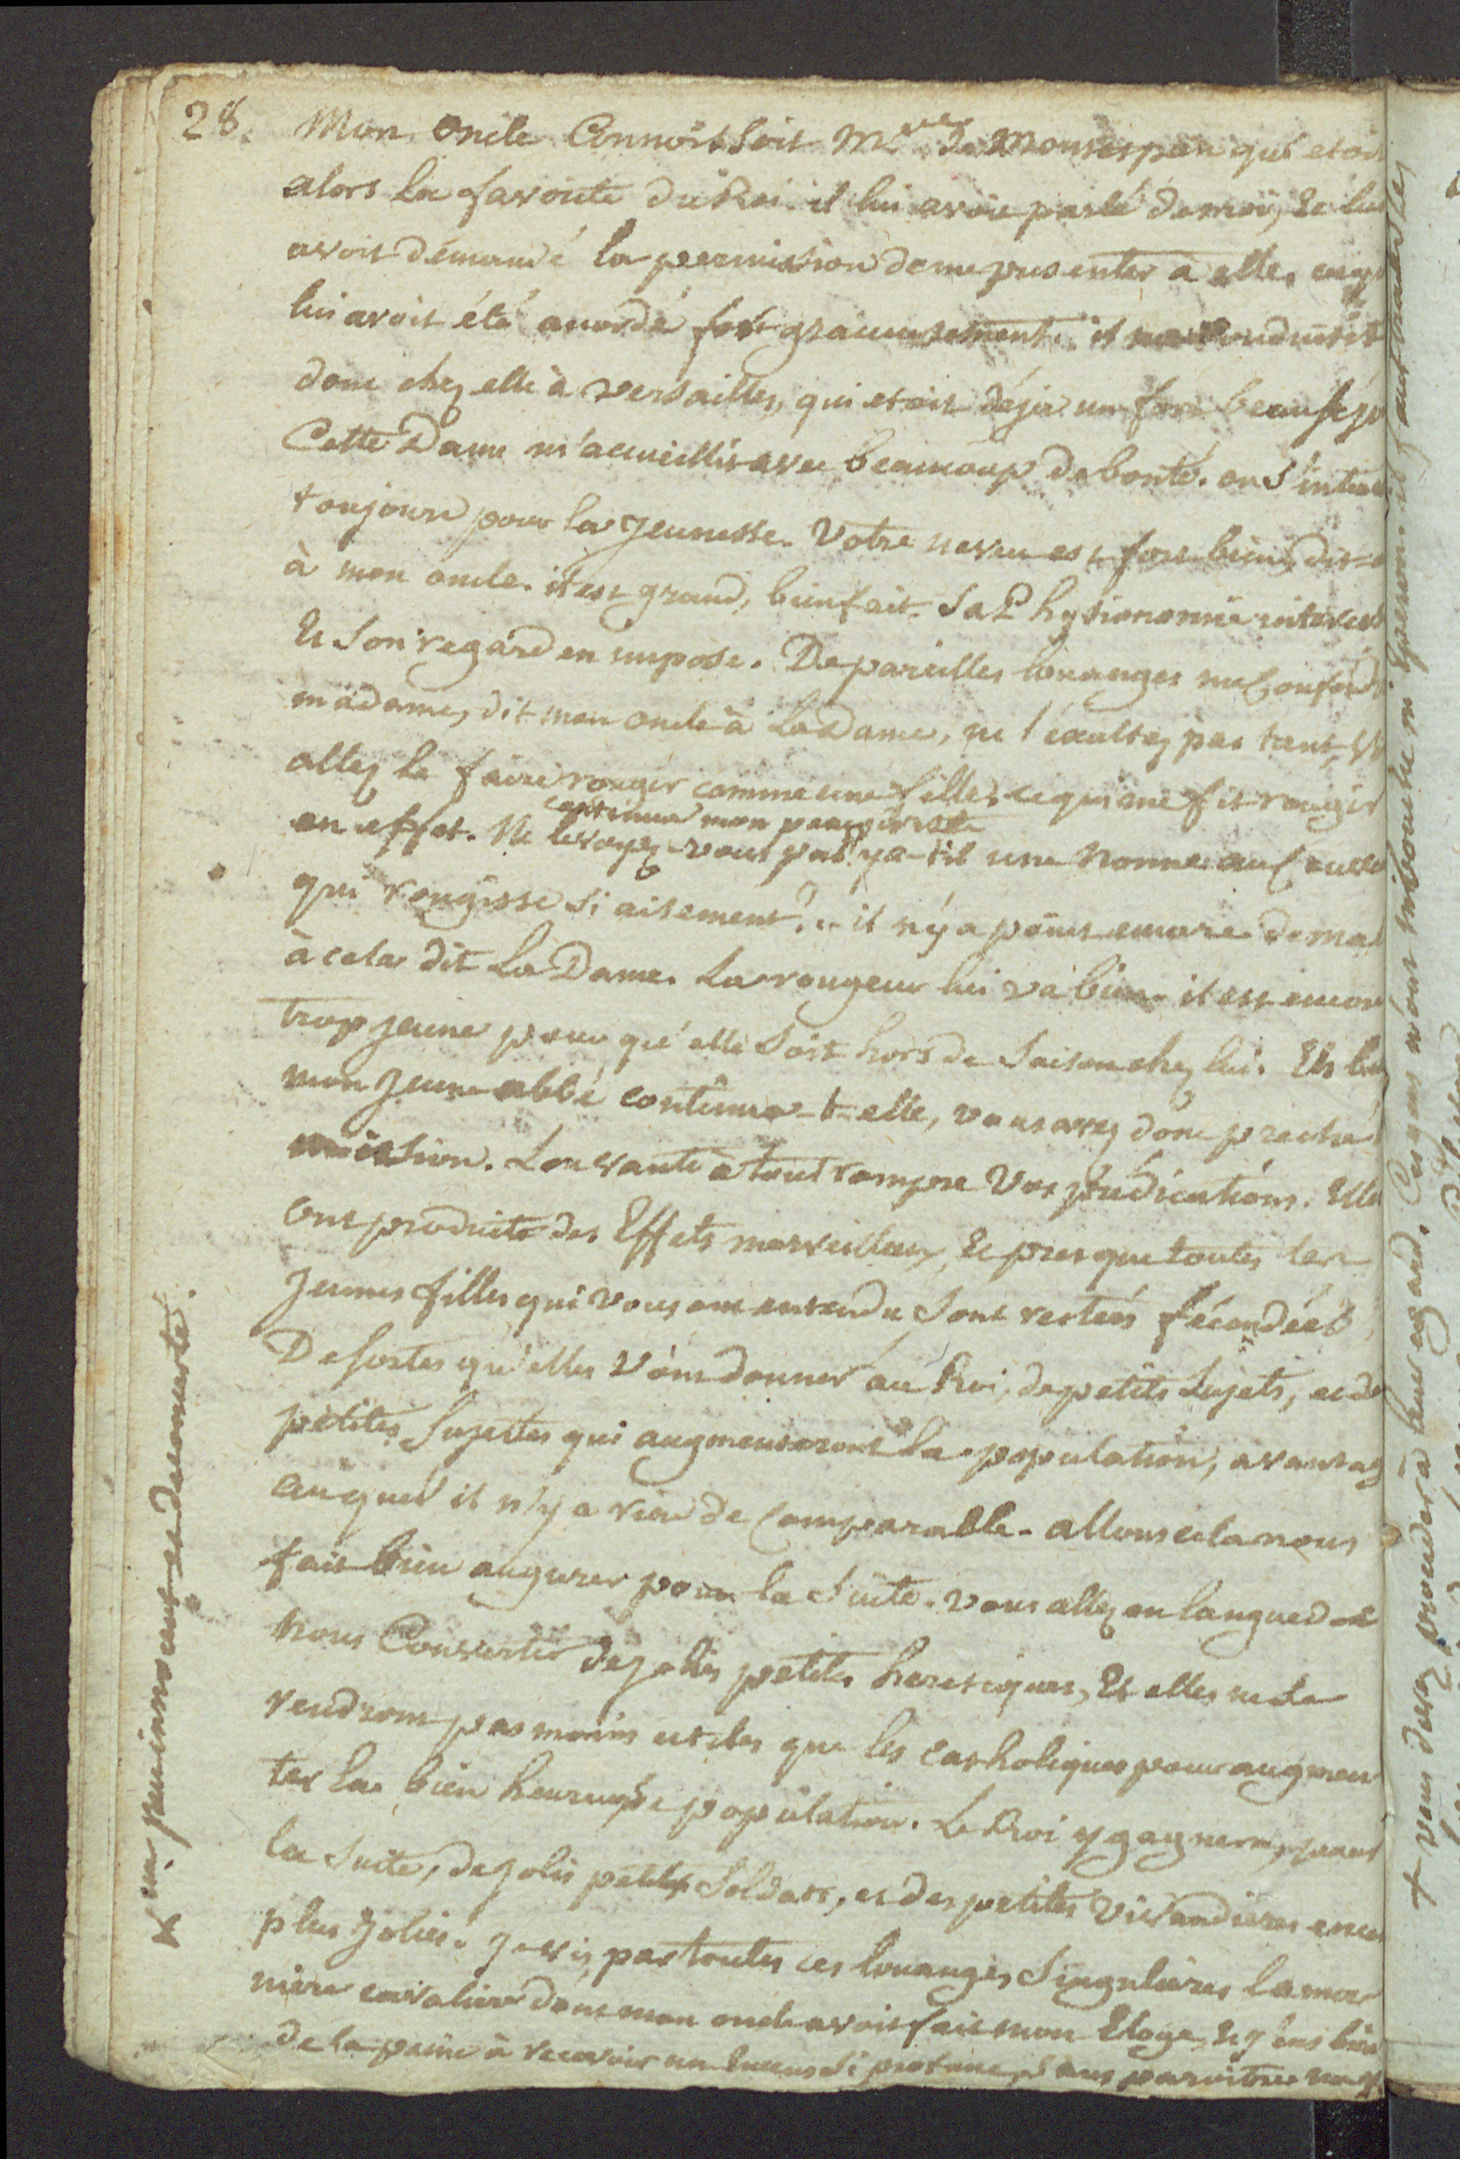 28. Mon oncle Connoissoit Md.e de Montespan qui etoi
alors la favorite du Roi. il lui avoit parlé de moi, Et lui
avoit démandé la permission de me presenter à elle. ce qui
lui avoit été acordé fort gracieusement. il me conduisit
donc chez elle à versailles, qui etoit déja un fort beau séjo
Cette Dame m'accueillit avec beaucoup de bonté. on s'intere
toujours pour la jeunesse. Votre neveu est fort bien, dit-e
à mon oncle. il est grand, bienfait. Sa Physionomie interes
Et Son regard en impose. De pareilles louanges me Confond
madame, dit mon oncle à la Dame, ne l'exaltez pas tant, v
allez le faire rougir comme une fille. ce qui me fit rougir
en effet. Ne le voyez-vous pas? continua mon y a-t-il une nonne au
qui rougisse si aisement? .. il n'y a point encore de mal
à cela dit la Dame. La rougeur lui va bien. il est encor
trop jeune pour qu'elle soit hors de saison chez lui. Eh bien
mon jeune abbé continua-t-elle, vous avez donc preché
mission. L'on vante à tout rompre vos prédications. Elles
ont produit des Effets merveilleux, Et presque toutes les
jeunes filles qui vous ont entendu sont restées fécondées
De sortes qu'elles vont donner au Roi, de petits sujets, et de
petites Sujettes qui augmenteront la population, avantag
auquel il n'y a rien de Comparable. allons cela nous
fait bien augurer pour la suite. vous allez en languedoc
nous Convertir de jolies petites heretiques, Et elles ne se
rendront pas moins utiles que les catholiques pour augmen
ter la bien heureuse population. Le Roi y gagnera, pour
la suite, de jolis petits Soldats, et des petites vivandieres enco
plus jolies. Je vis par toutes ces louanges singulieres la ma
niere cavaliere dont mon oncle avoit fait mon Eloge, Et j'eus bien
de la peine à recevoir un encens si profane, sans paroitre
x. un peu innocent et deconcerté.
+ vous devez proceder à leur egard.